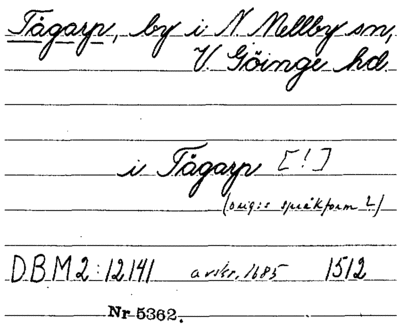 Tågarp, by i N Mellby sn,
V. Göinge hd.
i Tågarp [!]
(orig:s språkform?)
DBM2:12141 avskr. 1685 1512
Nr 5362.